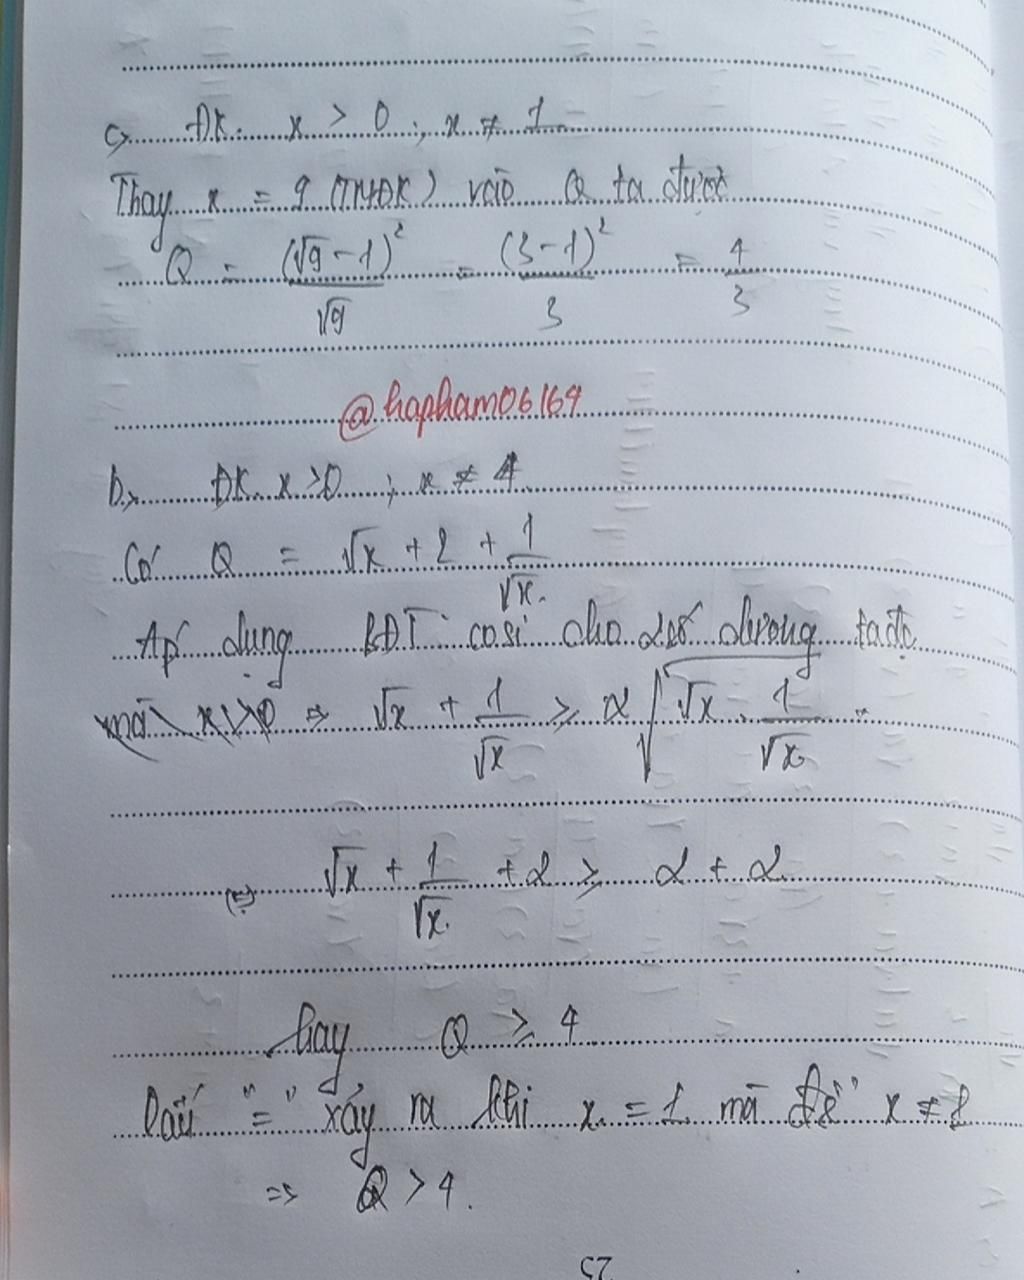 c, ĐK: x > 0 ; x ≠ 1
Thay x = 9 (TMĐK) vào Q ta được
Q = (√9 - 1)² / √9 = (3 - 1)² / 3 = 4/3
@hapham06164
b, ĐK x > 0 ; x ≠ 4
Có Q = √x + 2 + 1/√x
Áp dụng BĐT cosi cho 2 số dương ta đc
√x + 1/√x ≥ 2√(√x . 1/√x)
(=) √x + 1/√x + 2 ≥ 2 + 2
hay Q ≥ 4
Dấu "=" xảy ra khi x = 1 mà đề x ≠ 1
=> Q > 4.
25